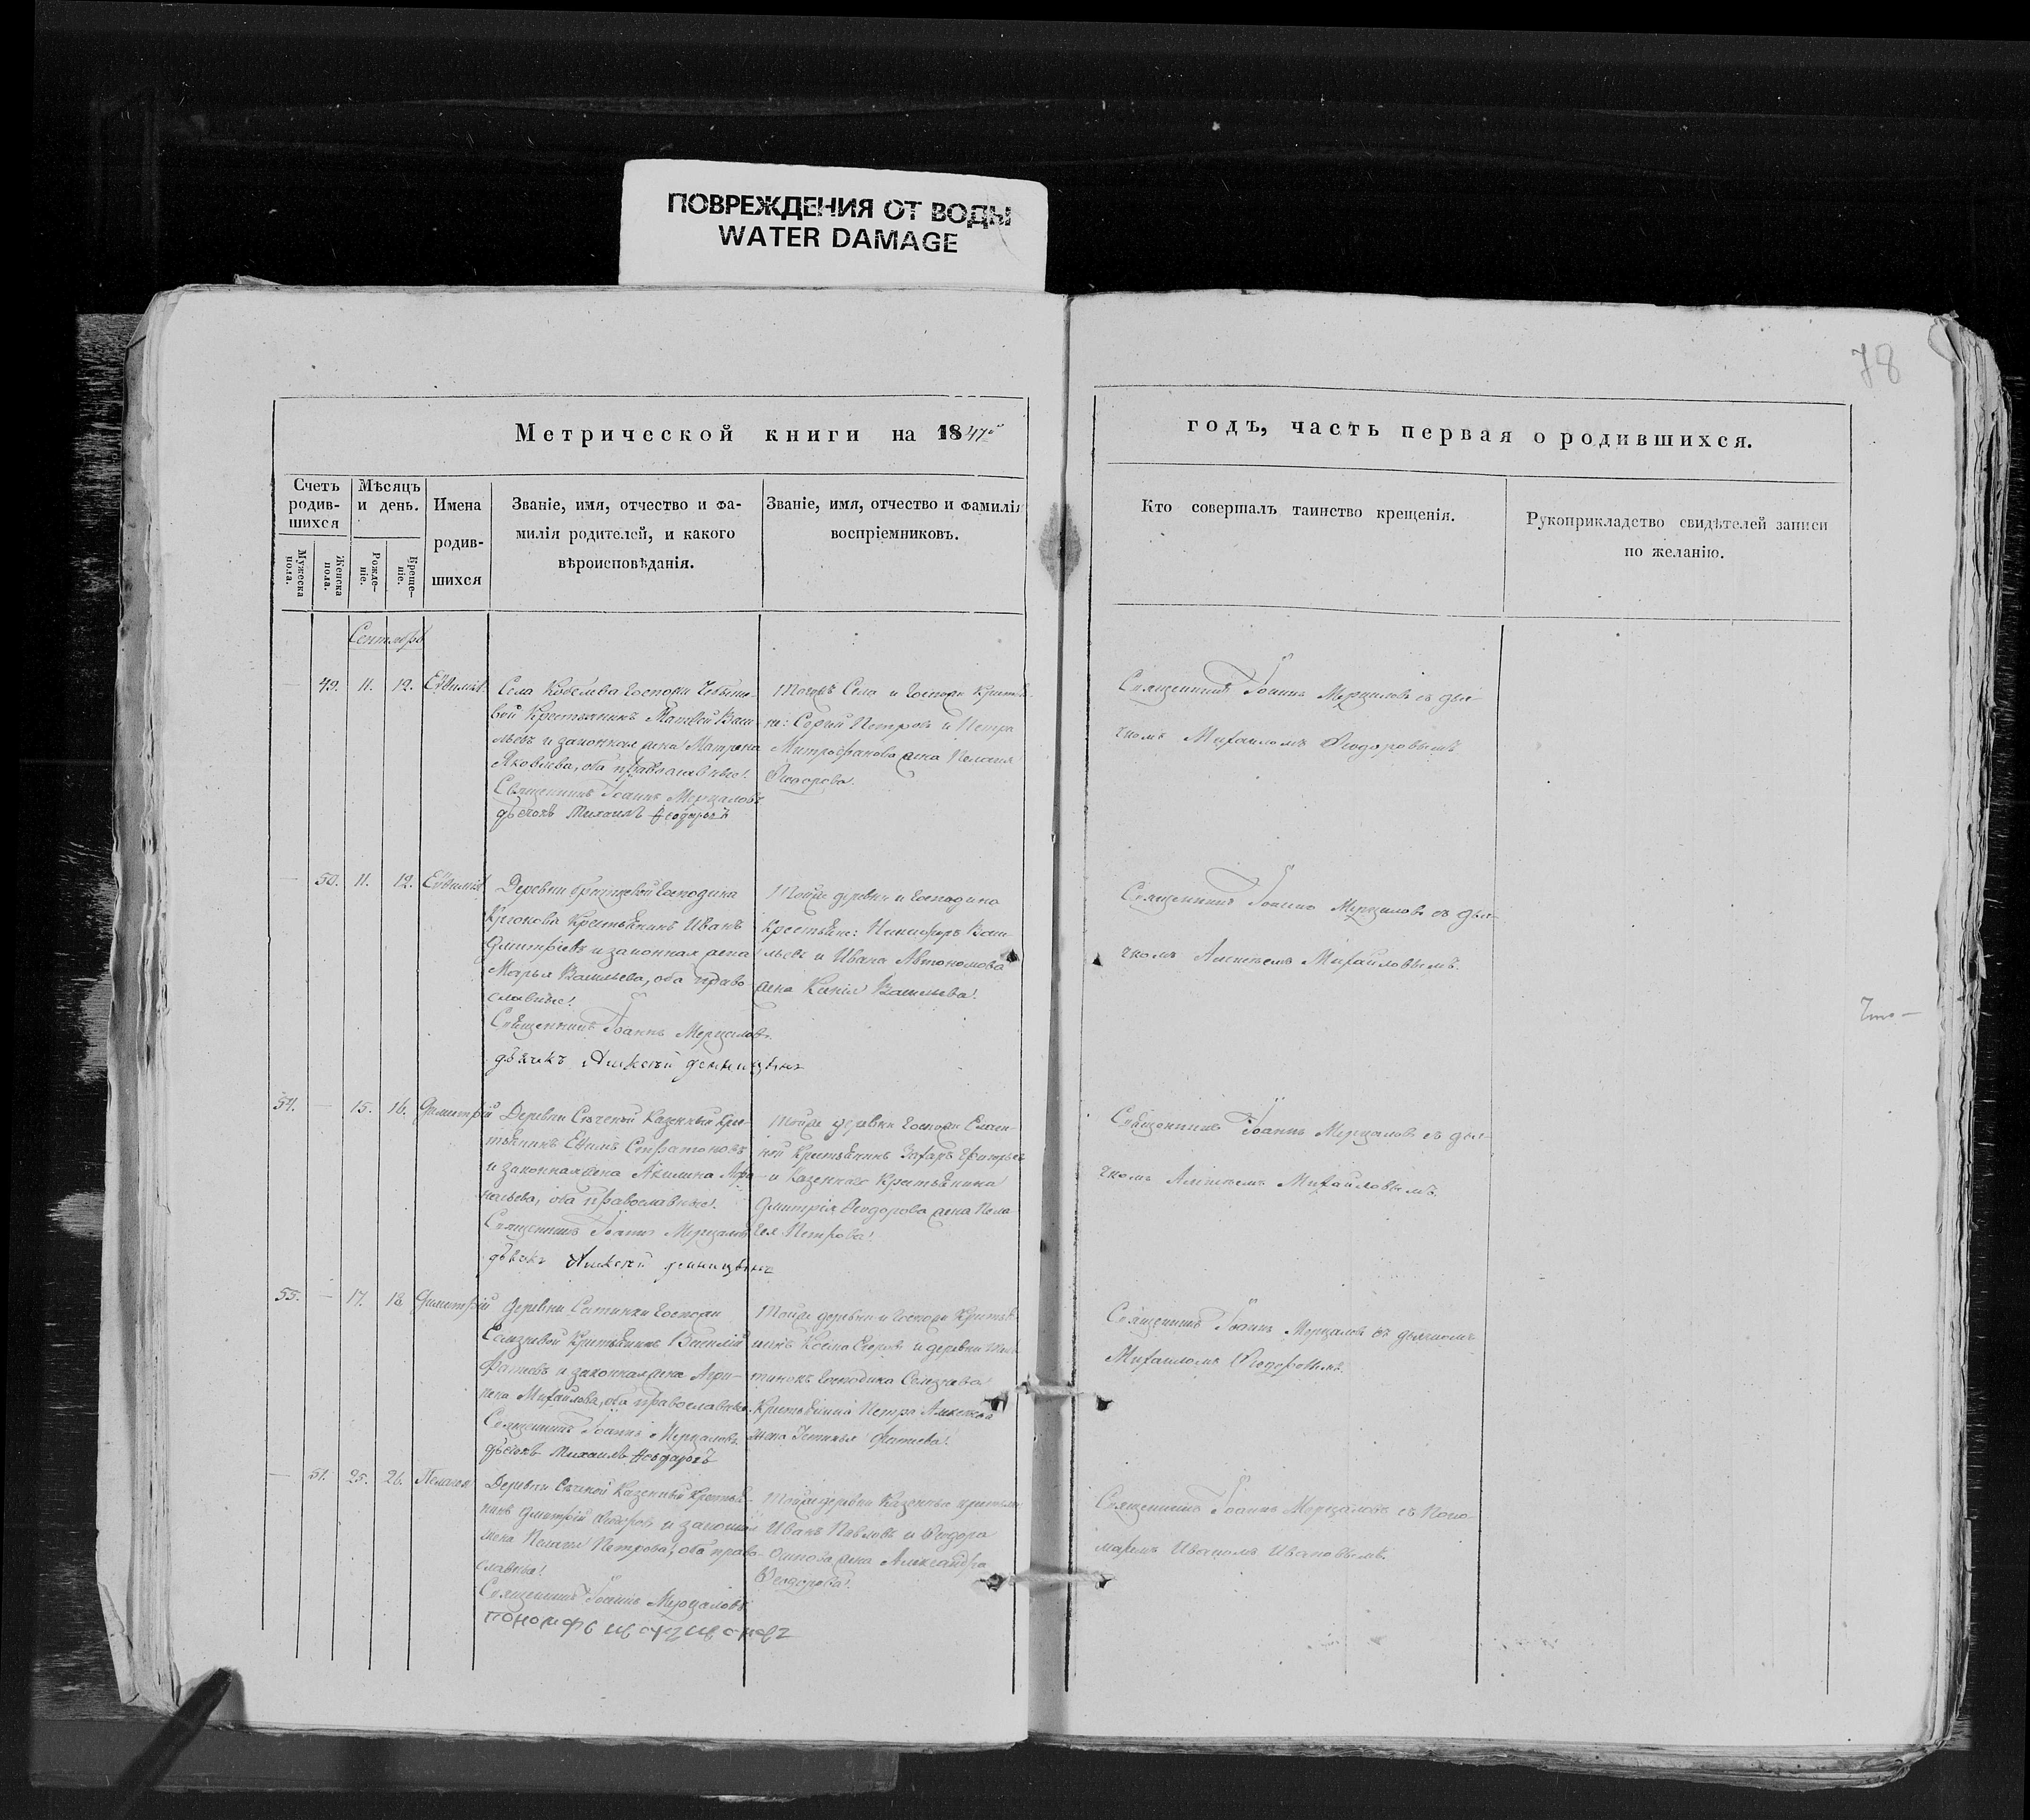 ПОВРЕЖДЕНИЯ ОТ ВОДЫ
WATER DAMAGE
78
Метрической книги на 1847й
годъ, часть первая о родившихся.
Счетъ родив-шихся
Мужеска пола.
Женска пола.
Мѣсяцъ и день.
Рожде-ніе.
Креще-ніе.
Имена родив-шихся
Званіе, имя, отчество и фа-
милія родителей, и какого
вѣроисповѣданія.
Званіе, имя, отчество и фамилія
воспріемниковъ.
Кто совершалъ таинство крещенія.
Рукоприкладство свидѣтелей записи
по желанію.
Сентябрь
49. 11. 12. Евѳимія
Села Госпожи
вой Крестьянинъ Матвей Васи-
льевъ и законная жена Матрона
Яковлева, оба православные.
Священникъ Іоаннъ Мерцаловъ
дьячокъ Михаилъ Феодоровъ
Тогожъ Села и Госпожи Крестья-
не: Сергей Петровъ и Петра
Митрофанова жена Пелагия
Феодорова.
Священникъ Іоаннъ Мерцаловъ съ дья-
чкомъ Михаиломъ Феодоровымъ
50. 11. 12. Евѳимія
Деревни Господина
Крюкова Крестьянинъ Иванъ
Дмитріевъ и законная жена
Марья Васильева, оба право-
славные.
Священникъ Іоаннъ Мерцаловъ
дьячикъ Алексѣй
Тойже деревни и Господина
Крестьяне: Никифоръ Васи-
льевъ и Ивана Автономова
жена Ксенія Васильева.
Священникъ Іоаннъ Мерцаловъ съ дья-
чкомъ Алексѣемъ Михайловымъ.
54. 15. 16. Димитрій
Деревни Сѣченой Казенный Крес-
тьянинъ Евѳимъ
и законная жена Акилина
оба православные.
Священникъ Іоаннъ Мерцаловъ
дьячикъ Алексѣй
Тойже деревни Госпожи
Крестьянинъ Захаръ Григорьевъ
и Казеннаго Крестьянина
Дмитрія Феодорова жена Пела-
гея Петрова.
Священникъ Іоаннъ Мерцаловъ съ дья-
чкомъ Алексѣемъ Михайловымъ.
55. 17. 18. Димитрій
Деревни Сатинки Госпожи
Селезневой Крестьянинъ Василій
Фатеевъ и законная жена Агри-
пена Михайлова, оба православные.
Священникъ Іоаннъ Мерцаловъ
дьячокъ Михаилъ Феодоровъ
Тойже деревни и Госпожи Крестья-
нинъ Косма Егоровъ и деревни
Господина Селезнева
Крестьянина Петра Алексеева
жена Устинья Фатиева.
Священникъ Іоаннъ Мерцаловъ съ дьячкомъ
Михаиломъ Феодоровымъ
51. 25. 26. Пелагея
Деревни Сѣченой Казенный Крестья-
нинъ Дмитрій Феодоровъ и законная
жена Пелагея Петрова, оба право-
славные.
Священникъ Іоаннъ Мерцаловъ
пономарь Иванъ Ивановъ
Тойже деревни Казенные Крестьяне
Иванъ Павловъ и Феодора
Осипова жена Александра
Феодорова.
Священникъ Іоаннъ Мерцаловъ съ Поно-
маремъ Иваномъ Ивановымъ.